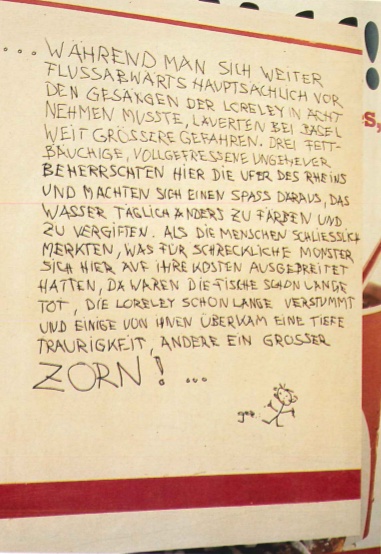 ... WÄHREND MAN SICH WEITER
FLUSSABWÄRTS HAUPTSÄCHLICH VOR
DEN GESÄNGEN DER LORELEY IN ACHT
NEHMEN MUSSTE, LAUERTEN BEI BASEL
WEIT GRÖSSERE GEFAHREN. DREI FETT-
BÄUCHIGE, VOLLGEFRESSENE UNGEHEUER
BEHERRSCHTEN HIER DIE UFER DES RHEINS
UND MACHTEN SICH EINEN SPASS DARAUS, DAS
WASSER TÄGLICH ANDERS ZU FÄRBEN UND
ZU VERGIFTEN. ALS DIE MENSCHEN SCHLIESSLICH
MERKTEN, WAS FÜR SCHRECKLICHE MONSTER
SICH HIER AUF IHRE KOSTEN AUSGEBREITET
HATTEN, DA WAREN DIE FISCHE SCHON LANGE
TOT, DIE LORELEY SCHON LANGE VERSTUMMT
UND EINIGE VON IHNEN ÜBERKAM EINE TIEFE
TRAURIGKEIT, ANDERE EIN GROSSER
ZORN! ...